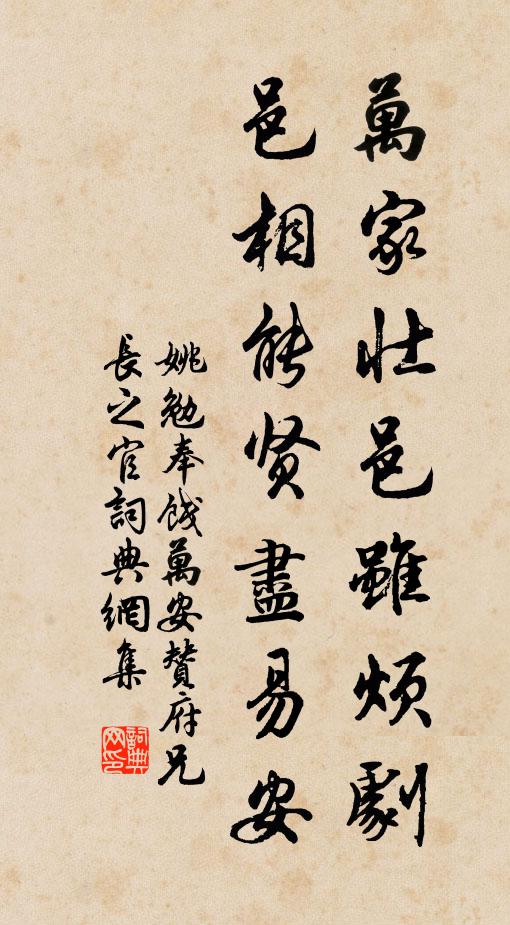 萬家壯邑雖煩劇
邑相能贤盡易安
姚勉奉餞萬安贊府兄
長之官詞典網集
詞典
网印